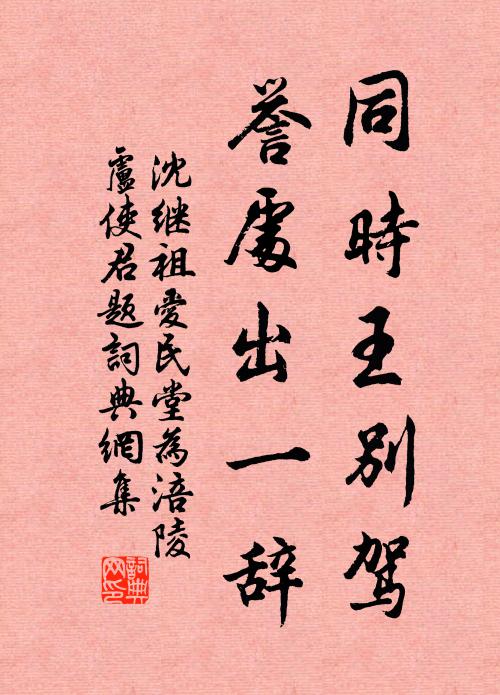 同時王别駕
譽處出一辞
沈继祖愛民堂為涪陵
盧使君題詞典網集
詞典网印